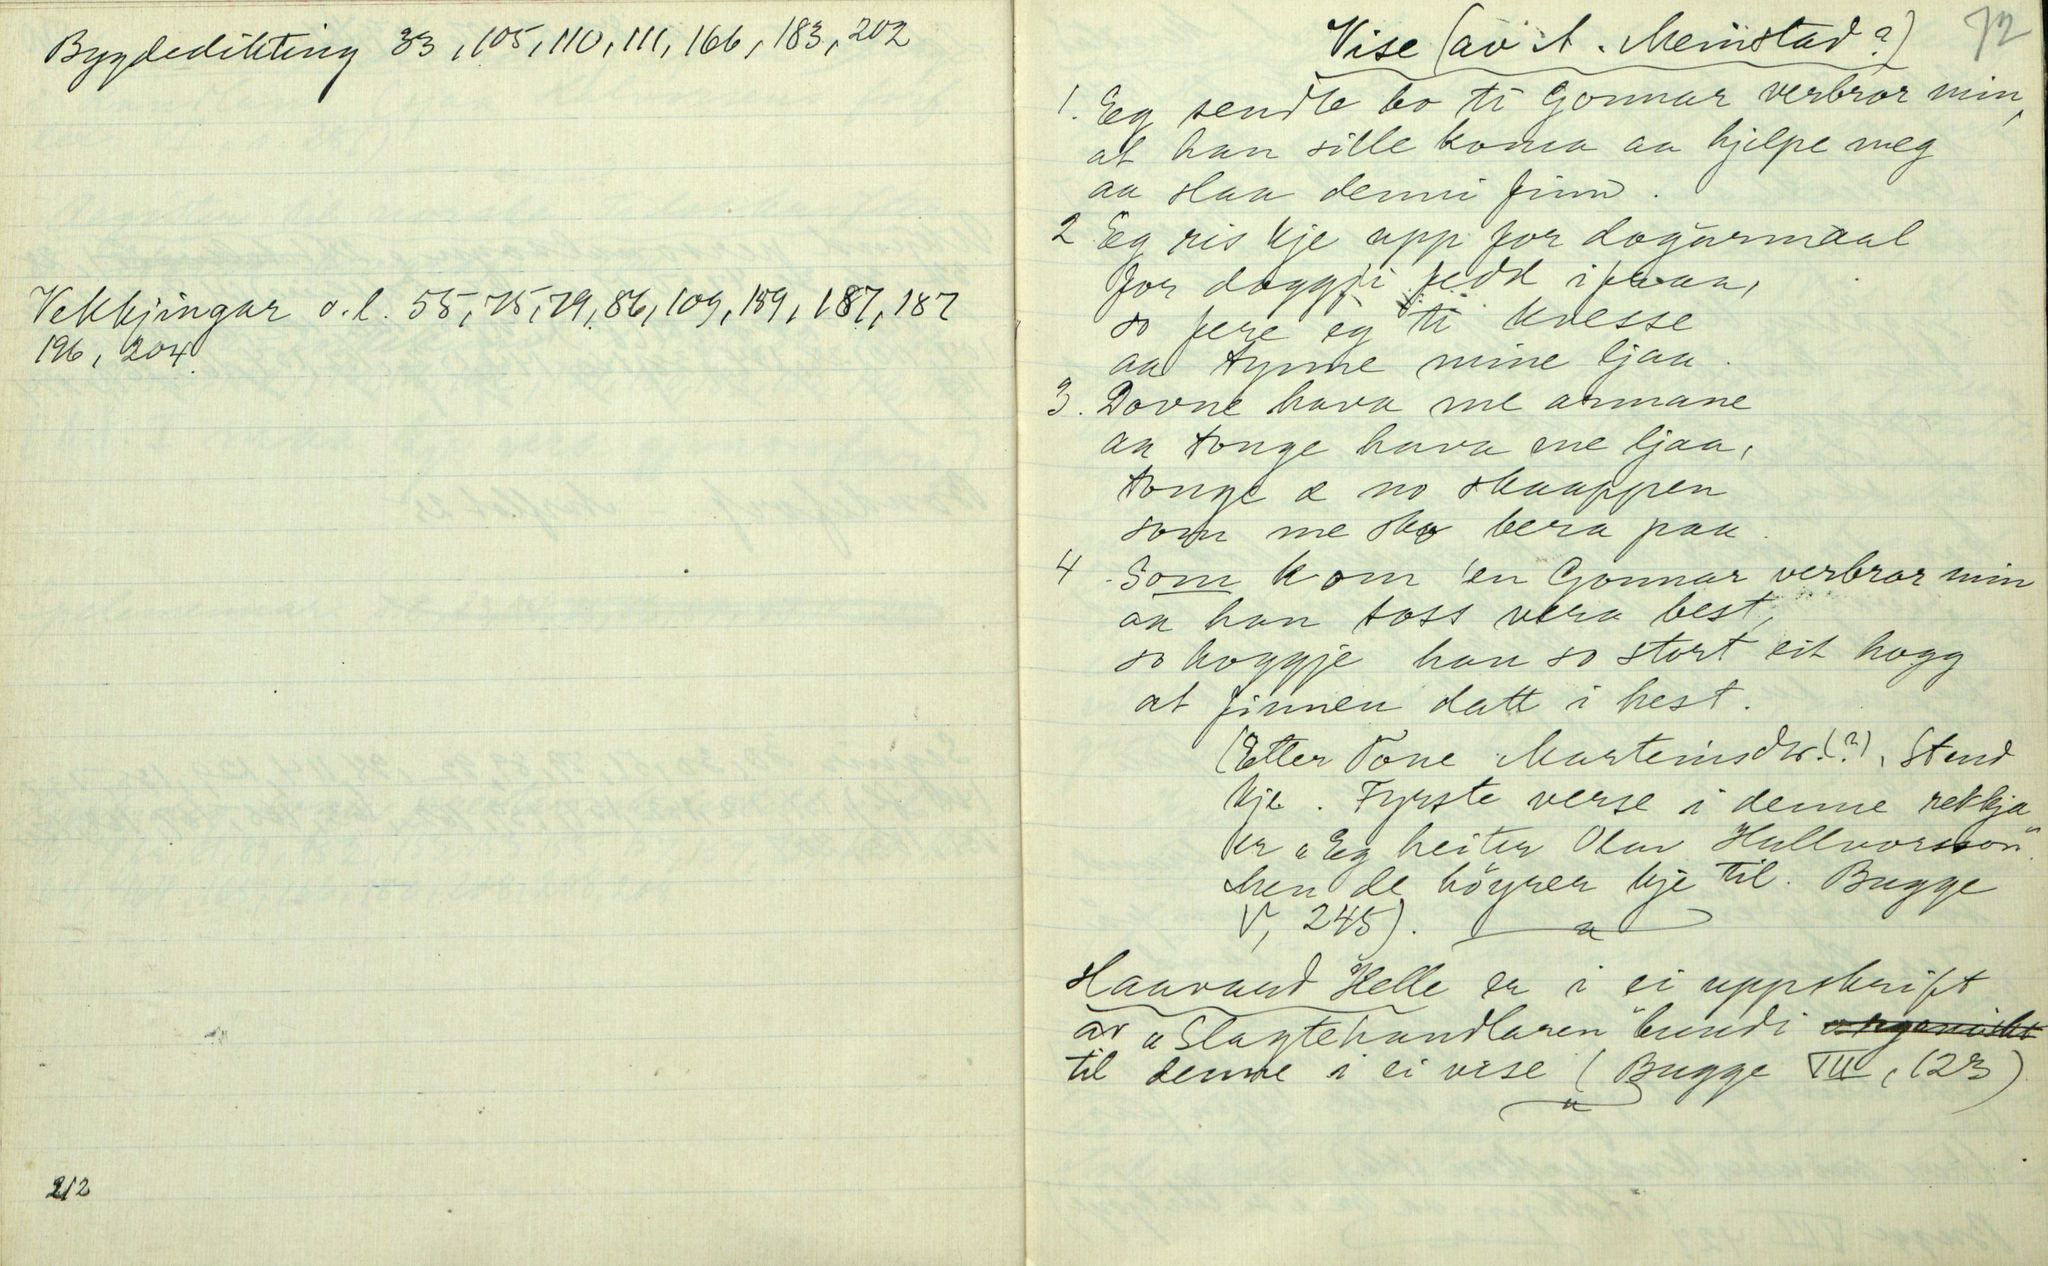 Bygdedikting 33, 105, 110, 111, 166, 183, 202
Vekkjingar o.l. 55, 75, 79, 86, 109, 159, 187, 187
196, 204
212
72
Vise (av A. Meinstad?)
1. Eg sendte bo ti Gonnar verbror min,
at han sille koma aa hjelpe meg
aa slaa denni finn.
2 Eg ris kje upp for dogurmaal
for doggji fedd ifraa,
so fere eg ti kvesse
aa tynne mine ljaa.
3. Dovne hava me armane
aa tonge hava me ljaa,
tonge æ no skaappen
som me ska bera paa.
4. Som kom 'en Gonnar verbror min
aa han toss vera best,
so hoggje han so stort eit hogg
at finnen datt i hest.
(Etter Tone Marteinsdtr.(?). Stend
kje. Fyrste verse i denne rekkja
er "Eg heiter Olav Hallvorsson".
Men de höyrer kje til. Bugge
V, 245).
Haavard Helle er i ei uppskrift
av "Slagtehandlaren" bundi organiskt
til denne i ei vise (Bugge III, 123)